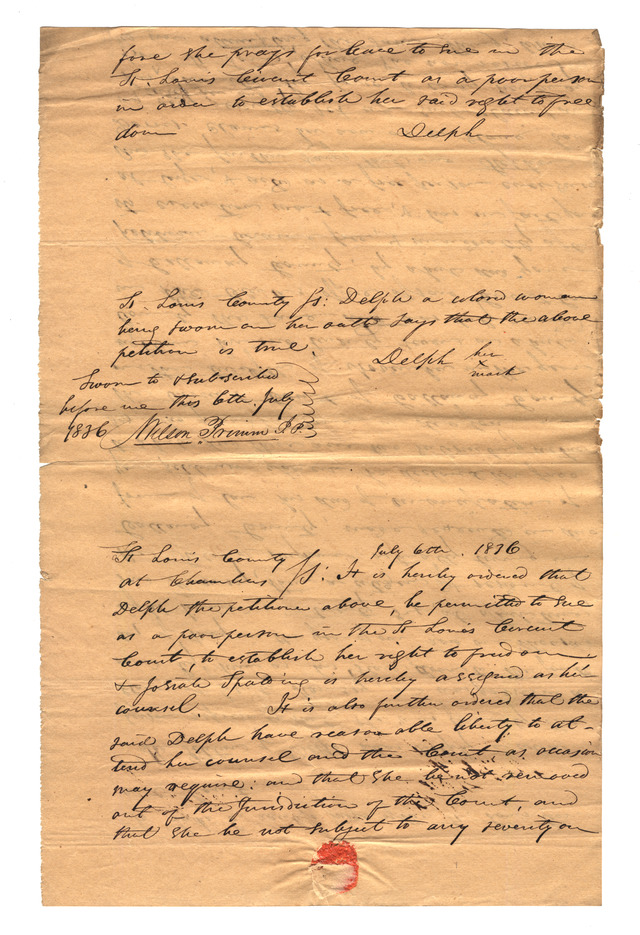 fore she prays for leave to sue in the
St. Louis Circuit Court as a poor person
in order to establish her said right to free
dom Delph
St. Louis County ss: Delph a colord woman
being sworn on her oath says that the above
petition is true.
Delph her
x
mark
Sworn to & subscribed
before me this 6th July
1836 Wilson Primm J.P.
St Louis County July 6th. 1836
at Chambers ss: It is hereby ordered that
Delph the petitioner above, be permitted to sue
as a poor person in the St Louis Circuit
Court, to establish her right to freedom
& Josiah Spalding is hereby assigned as her
counsel. It is also further ordered that the
said Delph have reasonable liberty to at-
tend her counsel and the Court as occasion
may require: and that she be not removed
out of the Jurisdiction of the Court, and
that she be not subject to any severity on